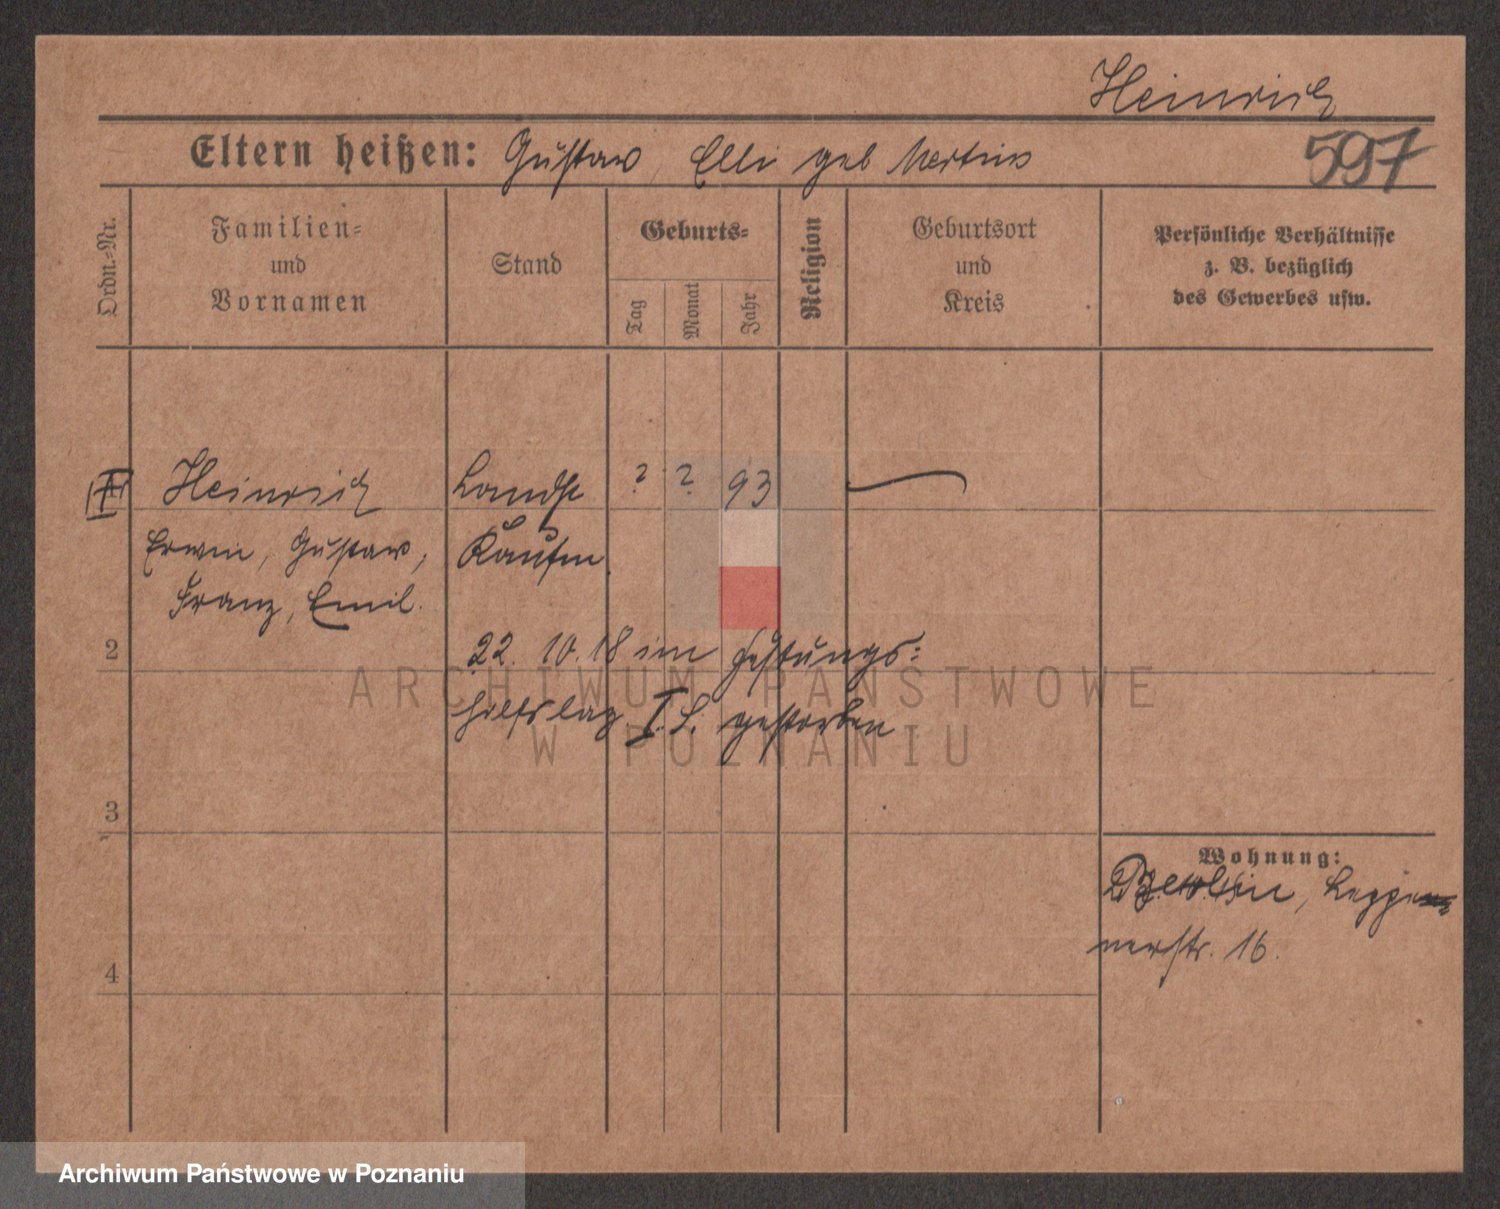 Heinrich
Eltern heißen: Gustav, Elli geb Mertins
597
Ordn.-Nr.
Familien-
und
Vornamen
Stand
Geburts-
Tag
Monat
Jahr
Religion
Geburtsort
und
Kreis
Persönliche Verhältnisse
z. B. bezüglich
des Gewerbes usw.
Heinrich Landst ? ? 93
Erwin, Gustav, Kaufm.
Franz, Emil.
2
22. 10. 18 im Festungs:
hilfslaz. I. L. gestorben
ARCHIWUM PAŃSTWOWE
W POZNANIU
3
Wohnung:
Berlin,
nerstr. 16.
4
Archiwum Państwowe w Poznaniu